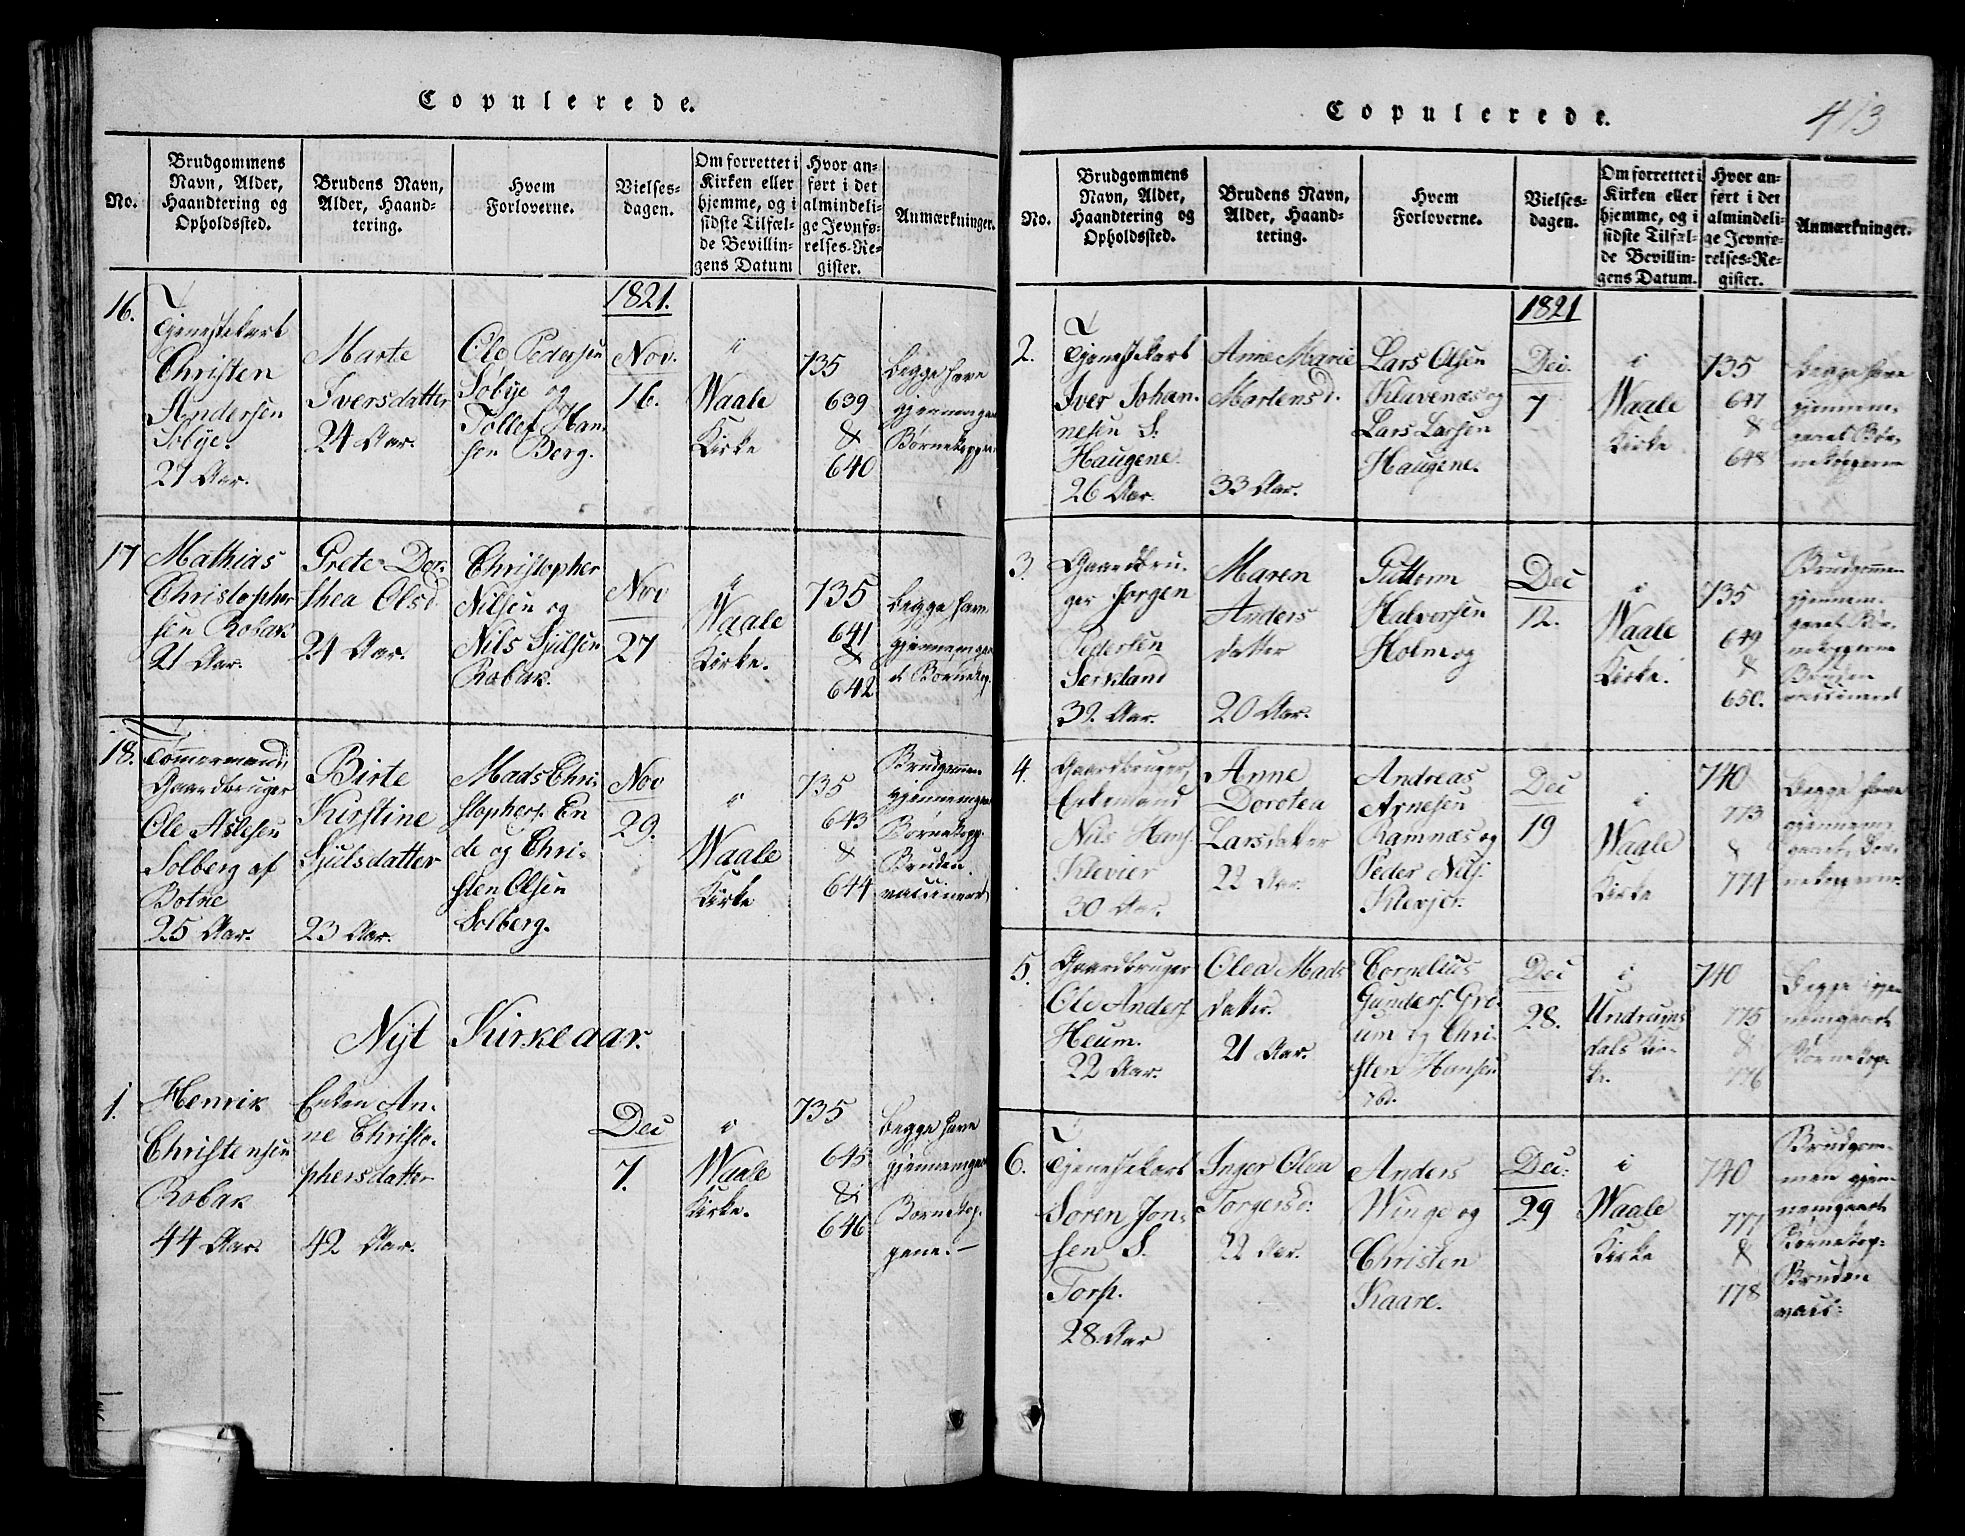 Copulerede.
No.
Brudgommens
Navn, Alder,
Haandtering og
Opholdssted.
Brudens Navn,
Alder, Haand-
tering.
Hvem
Forloverne.
Vielses-
dagen.
Om forrettet i
Kirken eller
hjemme, og i
sidste Tilfæl-
de Bevillin-
gens Datum
Hvor an-
ført i det
almindeli-
ge Jevnfø-
relses-Re-
gister.
Anmærkninger.
16.
Tjenestekarl
Christen
Andersen
Søbye.
27 Aar.
Marte
Iversdatter
24 Aar.
Ole Pedersen
Søbye og
Tollef Han-
sen Berg.
1821.
Nov.
16.
i
Waale
Kirke
735
639
&
640
Begge have
gjennemgaaet
Børnekopperne
17
Mathias
Christopher
sen Robak
21 Aar.
Grete Dor-
thea Olsd.
24 Aar.
Christopher
Nilsen og
Nils Sjulsen
Robak.
Nov
27
i
Waale
Kirke.
735
641
&
642
Begge have
gjennemgaa
et Børnekop.
18.
Tømmermand,
Gaardbruger
Ole Aslesen
Solberg af
Botne
25 Aar.
Birte
Kirstine
Sjulsdatter
23 Aar.
Mads Chri-
stophers. En
de og Chri-
sten Olsen
Solberg.
Nov
29.
i
Waale
Kirke
735
643
&
644
Brudgommen
gjennemgaaet
Børnekopp.
Bruden
vaccineret
Nyt Kirkeaar.
1.
Henrik
Christensen
Robak
44 Aar.
Enken An-
ne Christo-
phersdatter
42 Aar.
Dec
7.
i
Waale
Kirke.
735
645
&
646
Begge have
gjennemgaaet
Børnekop-
pene.—
Copulerede.
413
No.
Brudgommens
Navn, Alder,
Haandtering og
Opholdssted.
Brudens Navn,
Alder, Haand-
tering.
Hvem
Forloverne.
Vielses-
dagen.
Om forrettet i
Kirken eller
hjemme, og i
sidste Tilfæl-
de Bevillin-
gens Datum.
Hvor an-
ført i det
almindeli-
ge Jevnfø-
relses-Re-
gister.
Anmærkninger.
2.
Tjenestekarl
Iver Johan-
nesen S.
Haugene.
26 Aar.
Anne Marie
Martensd.
33 Aar.
Lars Olsen
Kluvenæs og
Lars Larsen
Haugene.
1821
Dec.
7
i
Waale
Kirke
735
647
&
648
Begge have
gjennem-
gaaet Bør-
nekopperne
3.
Gaardbru-
ger Jørgen
Pedersen
Serkland
39. Aar.
Maren
Anders
datter
20 Aar.
Guttorm
Halvorsen
Holm og
Dec
12.
i
Waale
Kirke.
735
649
&
650.
Brudgommen
gjennem-
gaaet Bør-
nekopperne
Bruden
vaccineret
4.
Gaardbruger,
Enkemand
Nils Hans.
Klevier
30 Aar.
Anne
Dorotea
Larsdatter
22 Aar.
Andreas
Arnesen
Ramnæs og
Peder Nils.
Klevjer.
Dec
19
i
Waale
Kirke
740
773
&
774
Begge have
gjennem-
gaaet Bør-
nekopperne.
5.
Gaardbruger
Ole Anders.
Heum.
22 Aar.
Olea Mads
datter.
21 Aar.
Cornelius
Gunders. Gre-
um og Chri-
sten Hansen
ibd.
Dec
28.
i
Undrums
dals Kir-
ke.
740
775
&
776
Begge igjen
nemgaaet
Børnekop.
6.
Tjenestekarl
Søren Jon-
sen S.
Torp.
28 Aar
Inger Olea
Torgersd.
22 Aar.
Anders
Winge og
Christen
Kaare.
Dec:
29
i
Waale
Kirke
740
777
&
778
Brudgom-
men gjen-
nemgaaet
Børnekop:
Bruden
vacc: